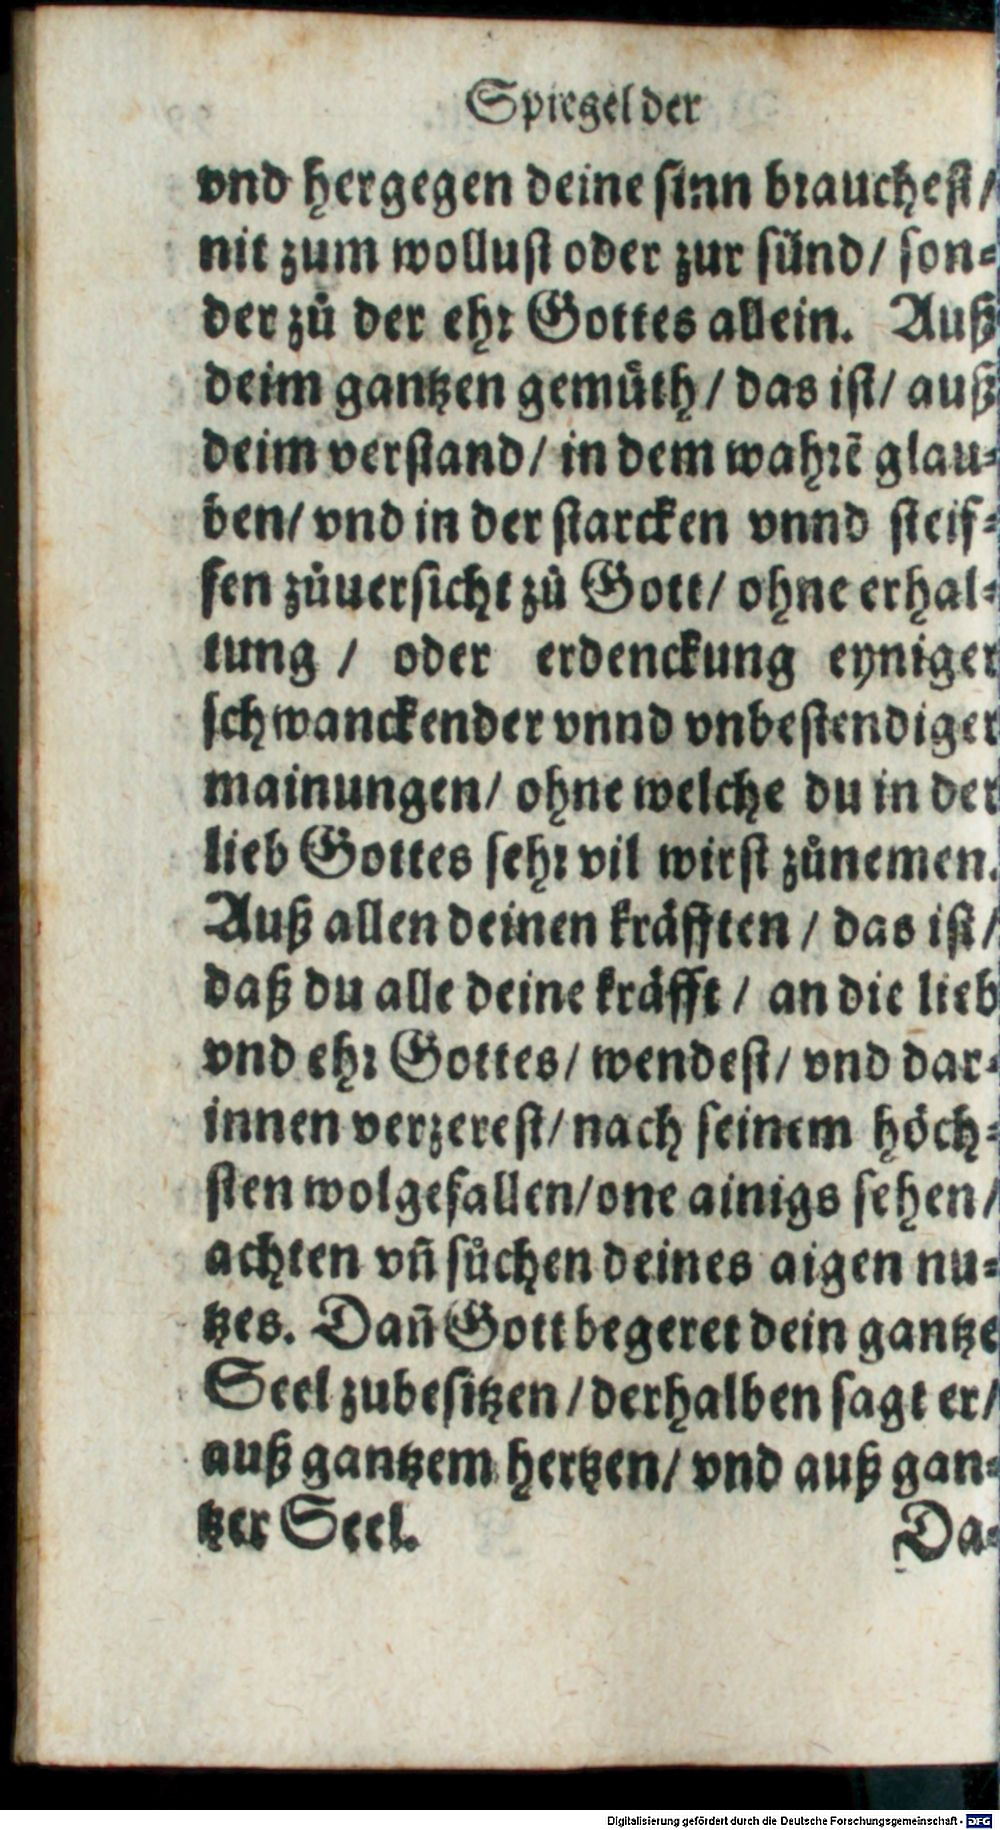 Spiegel der
vnd hergegen deine sinn brauchest /
nit zum wollust oder zur sünd / son⸗
der zů der ehr Gottes allein. Auß
deim gantzen gemüth / das ist / auß
deim verstand / in dem wahrẽ glau⸗
ben / vnd in der starcken vnnd steif⸗
fen zůuersicht zů Gott / ohne erhal⸗
tung / oder erdenckung eyniger
schwanckender vnnd vnbestendiger
mainungen / ohne welche du in der
lieb Gottes sehr vil wirst zůnemen.
Auß allen deinen kräfften / das ist /
daß du alle deine kräfft / an die lieb
vnd ehr Gottes / wendest / vnd dar⸗
innen verzerest / nach seinem höch⸗
sten wolgefallen / one ainigs sehen /
achten vñ sůchen deines aigen nu⸗
tzes. Dañ Gott begeret dein gantze
Seel zubesitzen / derhalben sagt er /
auß gantzem hertzen / vnd auß gan⸗
tzer Seel. Da⸗
Digitalisierung gefördert durch die Deutsche Forschungsgemeinschaft - DFG